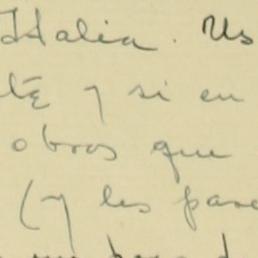 Italia. Us
té y si en
obras que
(y les pare